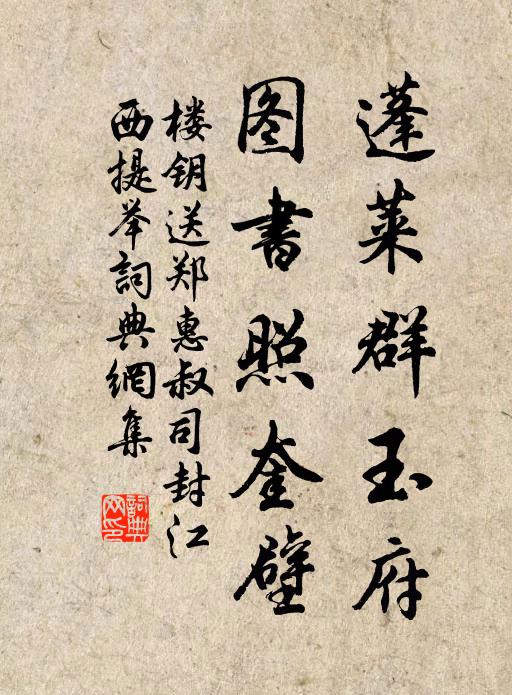 蓬莱群玉府
图書照奎壁
楼钥送郑惠叔司封江
西提举詞典網集
詞典
网印